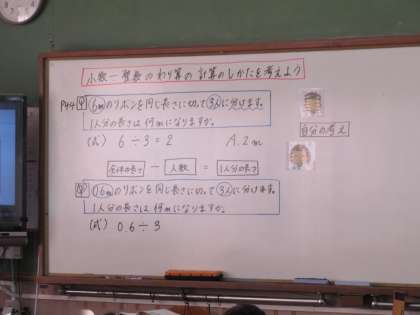 小数÷整数のわり算の計算のしかたを考えよう
P44 6mのリボンを同じ長さに切って3人に分けます。
1人分の長さは何mになりますか。
(式) 6÷3=2 A.2m
全体の長さ ÷ 人数 = 1人分の長さ
自分の考え
のリボンを同じ長さに切って3人に分けます。
1人分の長さは何mになりますか。
(式) 0.6÷3